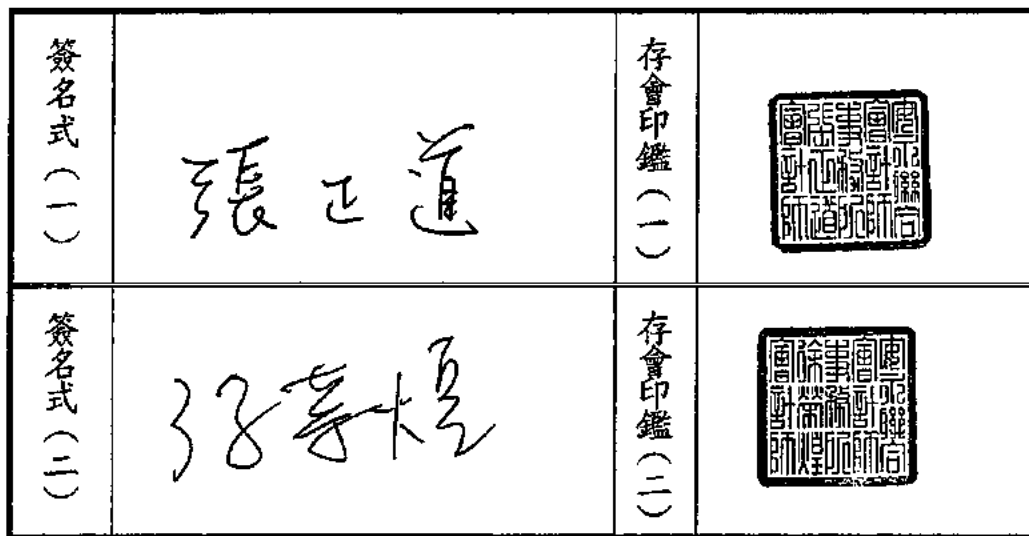 簽名式(一)
張正道
存會印鑑(一)
安永聯合會計師事務所張正道會計師
簽名式(二)
徐榮煌
存會印鑑(二)
安永聯合會計師事務所徐榮煌會計師